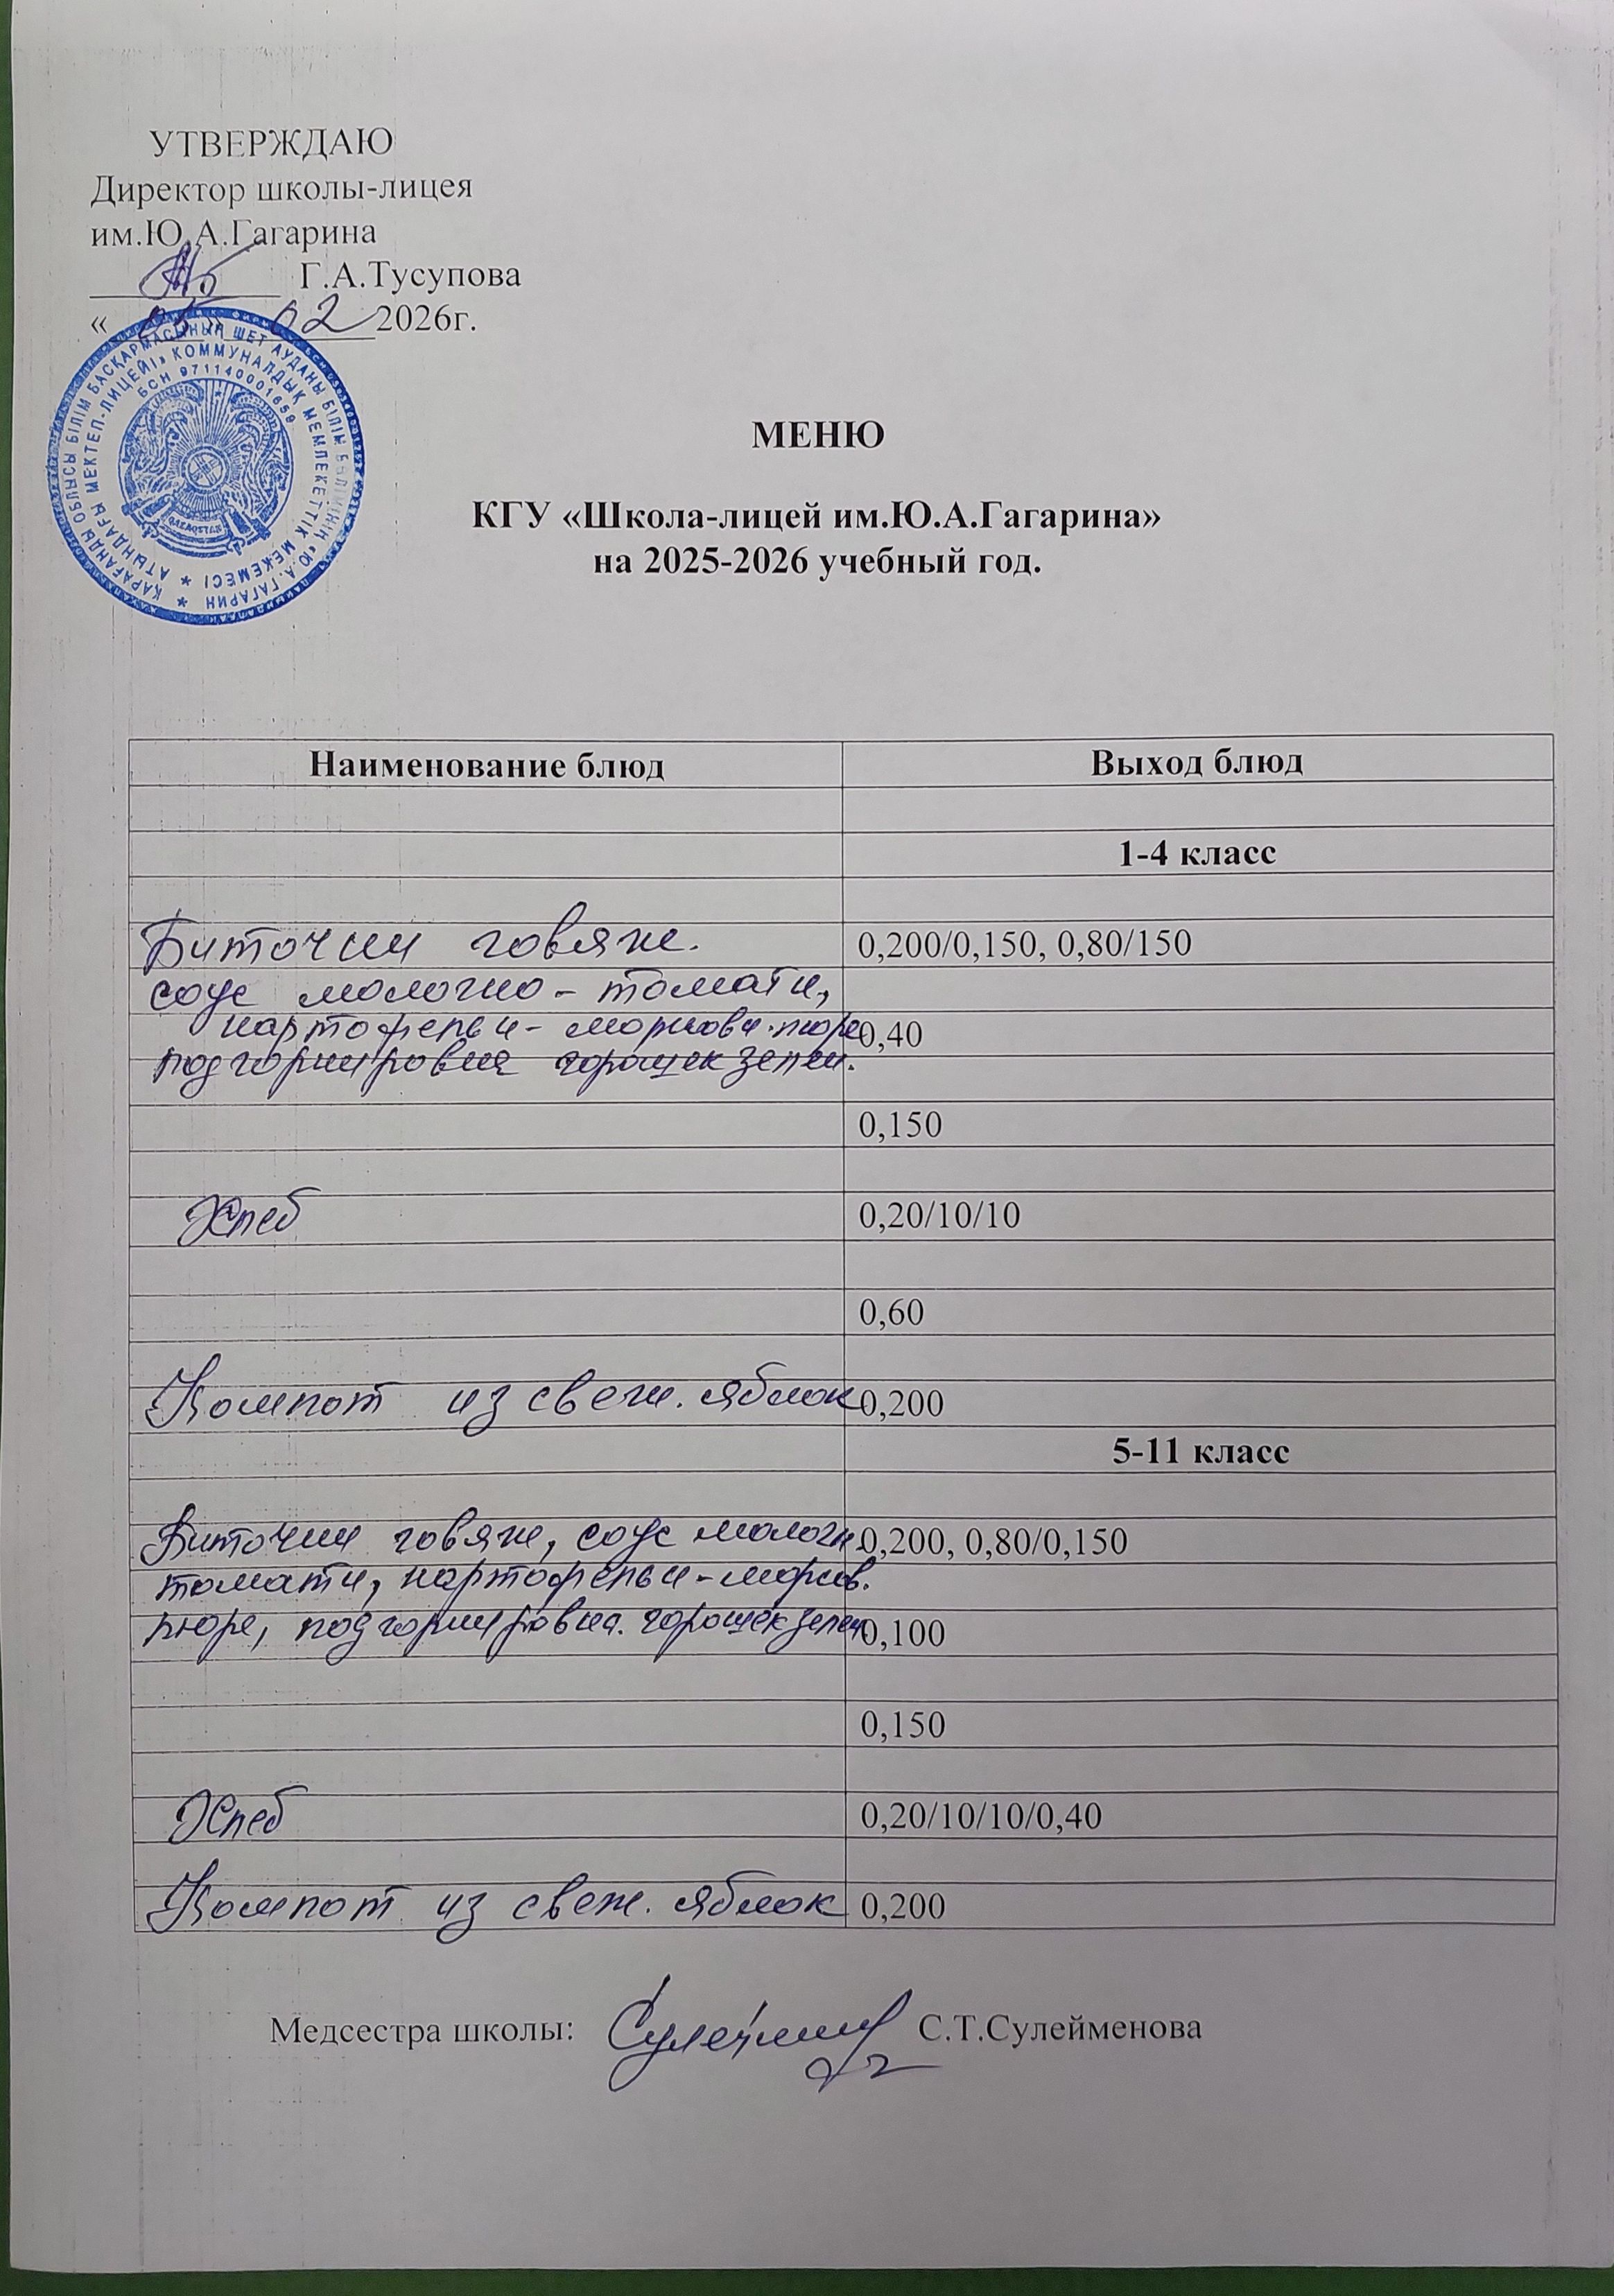 УТВЕРЖДАЮ
Директор школы-лицея
им.Ю.А.Гагарина
Г.А.Тусупова
« 05 » 02 2026г.
БСН 971140001659
QAZAQSTAN
МЕНЮ
КГУ «Школа-лицей им.Ю.А.Гагарина»
на 2025-2026 учебный год.
Наименование блюд Выход блюд
1-4 класс
Биточки говяж. 0,200/0,150, 0,80/150
соус молочно-томатн,
картофельн-морковн.пюре 0,40
подгарнировка горошек зелен.
0,150
Хлеб 0,20/10/10
0,60
Компот из свеж. яблок 0,200
5-11 класс
Биточки говяж, соус молочн. 0,200, 0,80/0,150
томатн, картофельн-морков.
пюре, подгарнировка. горошек зелен. 0,100
0,150
Хлеб 0,20/10/10/0,40
Компот из свеж. яблок 0,200
Медсестра школы: С.Т.Сулейменова